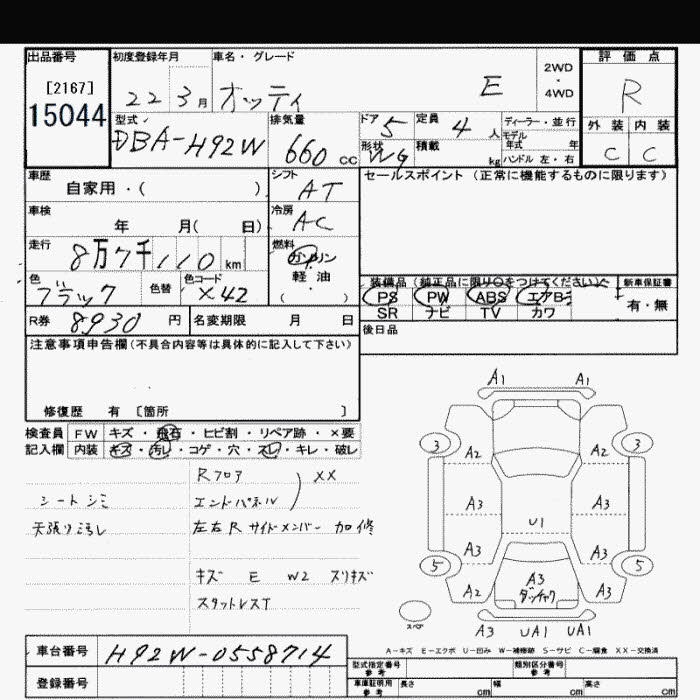 出品番号
[2167]
15044
初度登録年月
22 3月
車名・グレード
オッティ
E
2WD
・
4WD
評価点
R
型式
DBA-H92W
排気量
660 cc
ドア 5
定員 4 人
形状 Wg
積載 kg
ディーラー・並行
モデル
年式 年
ハンドル 左・右
外装 内装
C C
車歴
自家用・( )
シフト
AT
セールスポイント (正常に機能するものに限ります)
車検
年 月( 日)
冷房
AC
走行
8万7千110 km
燃料
ガソリン
軽・油
( )
色
ブラック
色替
色コード
X42
装備品(純正品に限り○をつけてください)
PS PW ABS エアB
SR ナビ TV カワ
新車保証書
有・無
R券 8930 円
名変期限 月 日
後日品
注意事項申告欄(不具合内容等は具体的に記入して下さい)
修復歴 有 〔箇所 〕
検査員
記入欄
FW キズ・飛石・ヒビ割・リペア跡・×要
内装 キズ・汚レ・コゲ・穴・スレ・キレ・破レ
シートシミ
天張り汚レ
Rフロア
エンドパネル
XX
左右Rサイドメンバー 加修
キズ E W2 スリキズ
スタットレスT
A1 A1
3 3
A2 A2
A3 A3
U1
A3 A3
5 5
A2 A3 A3
ダッシャク
スペア
A3 UA1 UA1
A-キズ E-エクボ U-凹み W-補修跡 S-サビ C-腐食 XX-交換済
車台番号 H92W-0558714
登録番号
型式指定番号
参考
類別区分番号
参考
車庫証明用
参考
長さ cm 幅 cm 高さ cm